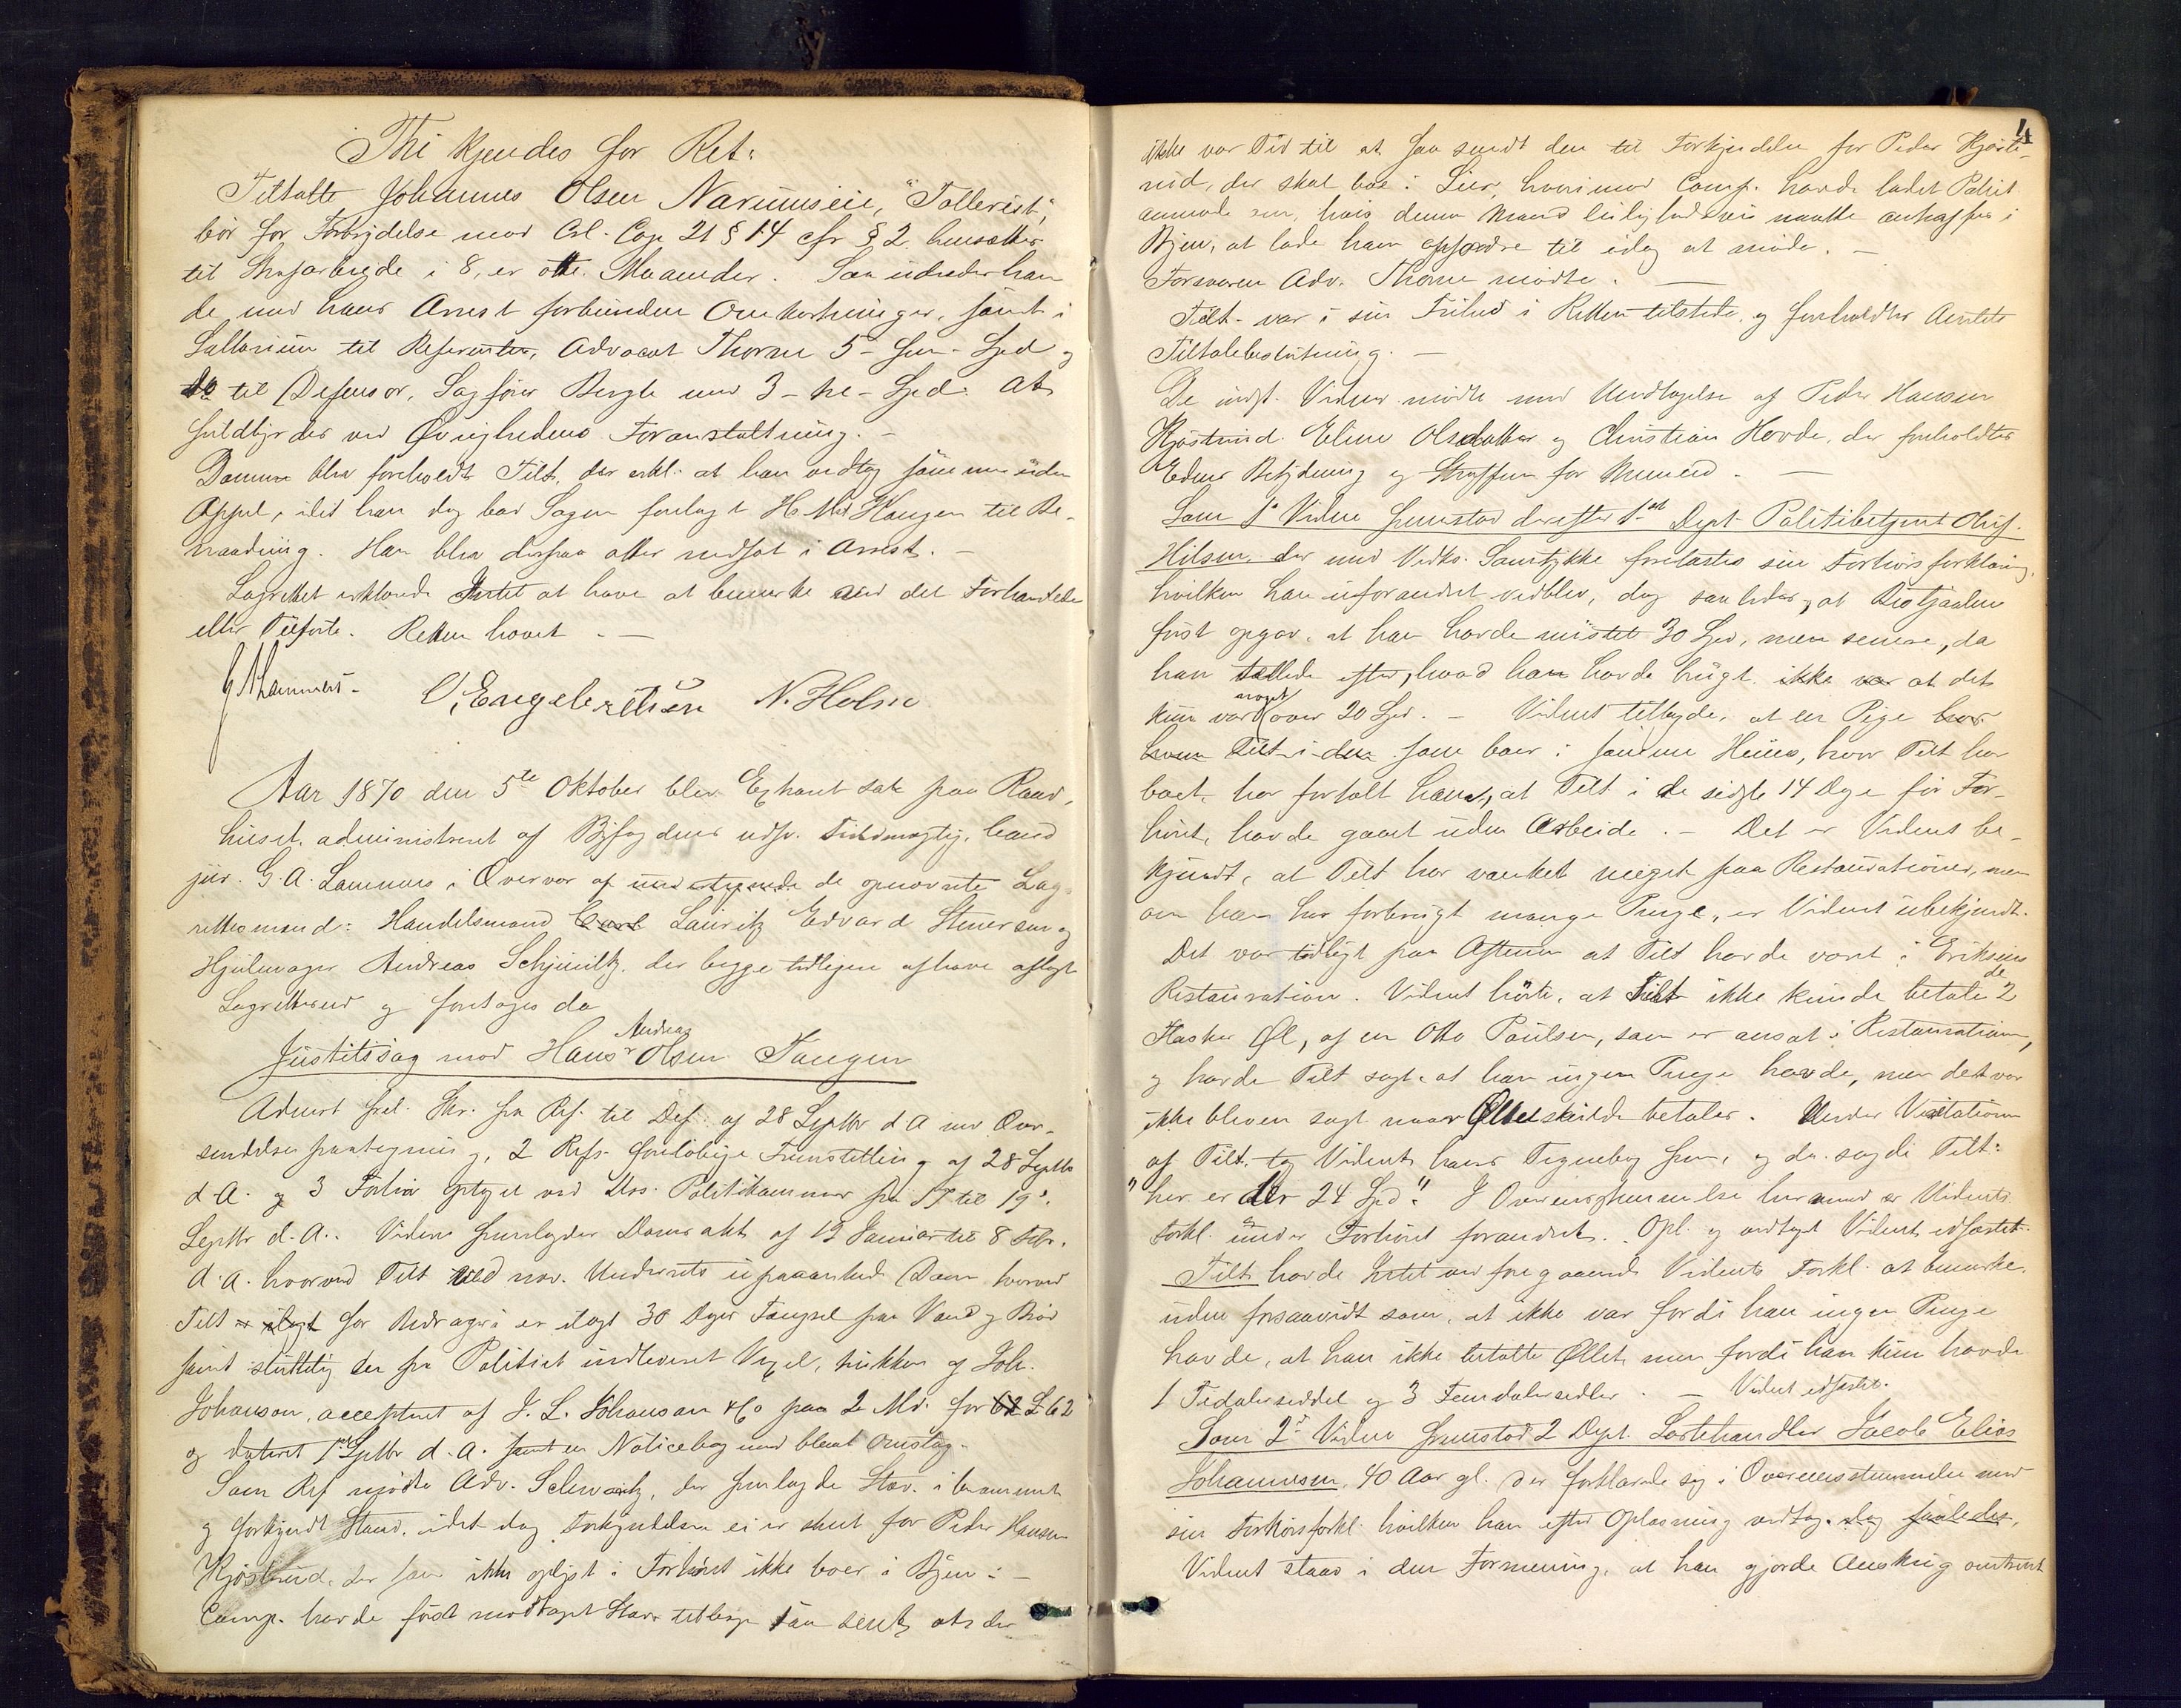 Thi kjendes for Ret:
Tiltalte Johannes Olsen Narumseie, "Tollerist",
bör for Forbrydelse mod Crl. Cap 21 § 14 cfr § 2 hensættes
til Strafarbeide i 8, er otte Maaneder. Saa udreder han
de med hans Arrest forbundne Omkostninger, samt i
Sallarium til Referenten, Advocat Thorne 5 - fem - Spd og
do til Defensor, Sagfører Bergh med 3 - tre - Spd. At
fuldbyrdes ved Øvrighedens Foranstaltning. -
Dommen blev foreholdt Tilt. der erkl. at han vedtog samme uden
Appel, idet han dog bad Sagen forelagt H. M. Kongen til Be-
naading. Han blev derpaa atter indsat i Arrest. -
Lagrettet erklærede Intet at have at bemærke ved det Forhandlede
eller Tilførte. Retten hævet. -
G A Lammers. C, Engelbretsen N. Holm
Aar 1870 den 5te Oktober blev Extraret sat paa Raad-
huset, administreret af Byfogdens udf. Fuldmægtig, cand
jur. G. A. Lammers i Overvær af de opnævnte Lag-
rettesmænd: Handelsmand Carl Lauritz Edvard Steversen og
Hjulmager Andreas Schjmiltz, der begge tidligere have aflagt
Lagrettesed og foretoges da
Justitssag mod Hans Andreas Olsen Tangen
Actor frel. Skr. fra Ref. til Def. af 28 Septbr d A med Over-
sendelsespaategning, 2 Refs. foreløbige Fremstilling af 28 Septbr
d. A. og 3 Forhør optaget ved Drs. Politikammer fra 17 til 19de
Septbr d. A. Videre fremlagdes Domsakt af 12 Januar til 8 Febr.
d. A. hvorved Tilt ved nærv. Underrets upaaankede Dom hvorved
Tilt for Bedrageri er ilagt 30 Dages Fængsel paa Vand og Brød
samt sluttelig den fra Politiet indleverede Vexel, trukken af Joh.
Johanson, accepteret af J. L. Johanson & Co paa 2 Md. for £ 62
og dateret 1ste Septbr d. A. samt en Noticebog med blaat Omslag.
Som Ref mødte Adv. Schwartz, der fremlagde Stævn. i beram­met
og forkyndt Stand, idet dog Forkyndelsen ei er skeet for Peder Hansen
Kjøstrud, der som ikke oplyst i Forhøret ikke boer i Byen: -
Comp. havde først modtaget Stævn tilbage saa sent, at der
ikke var Tid til at faa sendt den til Forkyndelse for Peder Kjøst-
rud, der skal boe i Lier, hvorimod Comp. havde ladet Politiet
anmode om, hvis denne Mand leilighedsvis maatte antræffes i
Byen, at lade ham opfordre til idag at møde. -
Forsvaren Adv. Thorne mødte. -
Tilt. var i sin Frihed i Retten tilstede, og foreholdtes Amtets
Tiltalebeslutning. -
De indst. Vidner mødte med Undtagelse af Peder Hansen
Kjøstrud, Eline Olsdatter og Christian Hovde, der foreholdtes
Edens Betydning og Straffen for Meened. -
Som 1e Vidne fremstod derefter 1ste Dept. Politibetjent Oluf
Hilsen, der med Vedks. Samtykke forelæstes sin Forhørsforklaring,
hvilken han uforandret vedblev, dog saaledes, at Bestjaalne
først opgav, at han havde mistet 30 Spd, men senere, da
han tællede efter, hvad han havde brugt, ikke var at det
kun var noget over 20 Spd. - Vidnet tilføyde, at en Pige hvor
Tilt i den som boer i samme Huus, hvor Tilt har
boet, har fortalt ham, at Tilt i de sidste 14 Dage før For-
høret, havde gaaet uden Arbeide. - Det er Vidnet be-
kjendt, at Tilt har vanket meget paa Restaurationer, men
om han har forbrugt mange Penge, er Vidnet ubekjendt.
Det var tidligt paa Aftenen at Tilt havde været i Eriksens
Restauration. Vidnet hørte, at Tilt ikke kunde betale de 2
Flasker Øl, af en Otto Poulsen, som er ansat i Restaurationen,
og havde Tilt sagt at han ingen Penge havde, men det var
ikke bleven sagt naar Øllet skulde betales. Under Visitationen
af Tilt. tog Vidnet hans Tegnebog frem, og da sagde Tilt:
"her er der 24 Spd". I Overensstemmelse hermed er Vidnets
Forkl. under Forhøret forandret. Opl. og vedtaget Vidnet edfæstet.
Tilt havde Intet ved foregaaende Vidnets Forkl. at bemærke,
uden forsaavidt som, at ikke var fordi han ingen Penge
havde, at han ikke betalte Øllet, men fordi han kun havde
1 Tidalerseddel og 3 Femdalersedler. - Vidnet edfæstet.
Som 2det Vidne fremstod 2 Dept. Lostehandler Jacob Elias
Johannesen, 40 Aar gl. der forklarede sig i Overensstemmelse med
sin Forhørsforkl. hvilken han efter Oplæsning vedtog, dog saaledes,
Vidnet staar i den Formening, at han gjorde Anskrig omtrent